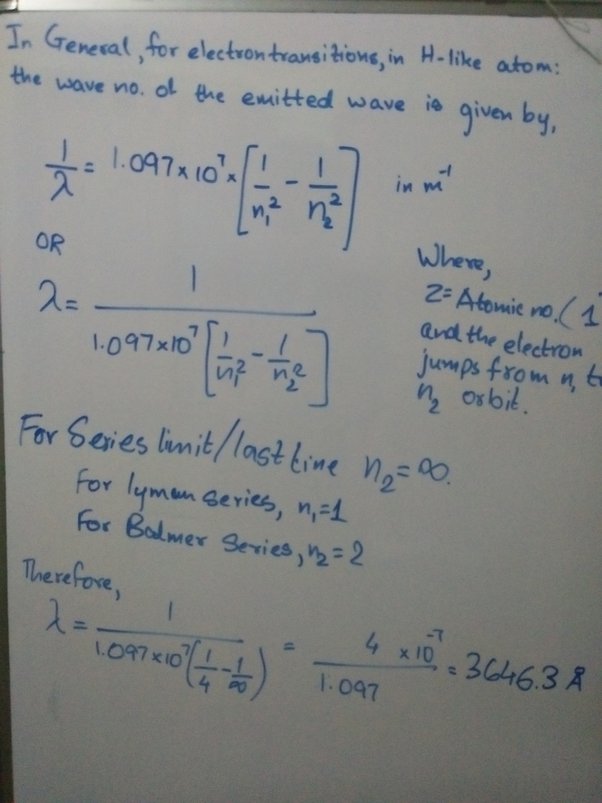 In General, for electron transitions, in H-like atom:
the wave no. of the emitted wave is given by,
1/λ = 1.097 × 10⁷ × [1/n₁² - 1/n₂²] in m⁻¹
OR
λ = 1/(1.097×10⁷ [1/n₁² - 1/n₂²])
Where,
Z = Atomic no. (1
and the electron
jumps from n₁ t
n₂ orbit.
For Series limit/last line n₂ = ∞.
For lyman series, n₁=1
For Balmer Series, n₂ = 2
Therefore,
λ = 1/(1.097×10⁷(1/4 - 1/∞)) = 4 × 10⁻⁷/1.097 = 3646.3 Å